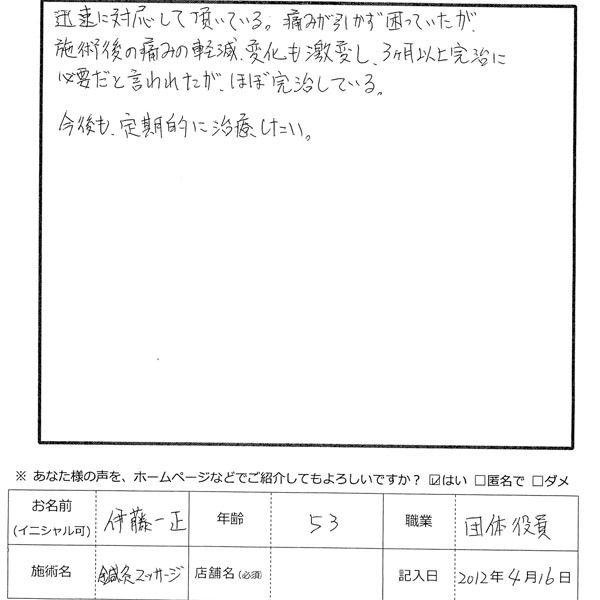 迅速に対応して頂いている。痛みが引かず困っていたが、
施術後の痛みの軽減、変化も激変し、3ヶ月以上完治に
必要だと言われたが、ほぼ完治している。
今後も、定期的に治療したい。
※ あなた様の声を、ホームページなどでご紹介してもよろしいですか？ ☑はい □匿名で □ダメ
お名前 (イニシャル可) 伊藤一正 年齢 53 職業 団体役員
施術名 鍼灸マッサージ 店舗名(必須) 記入日 2012年4月16日